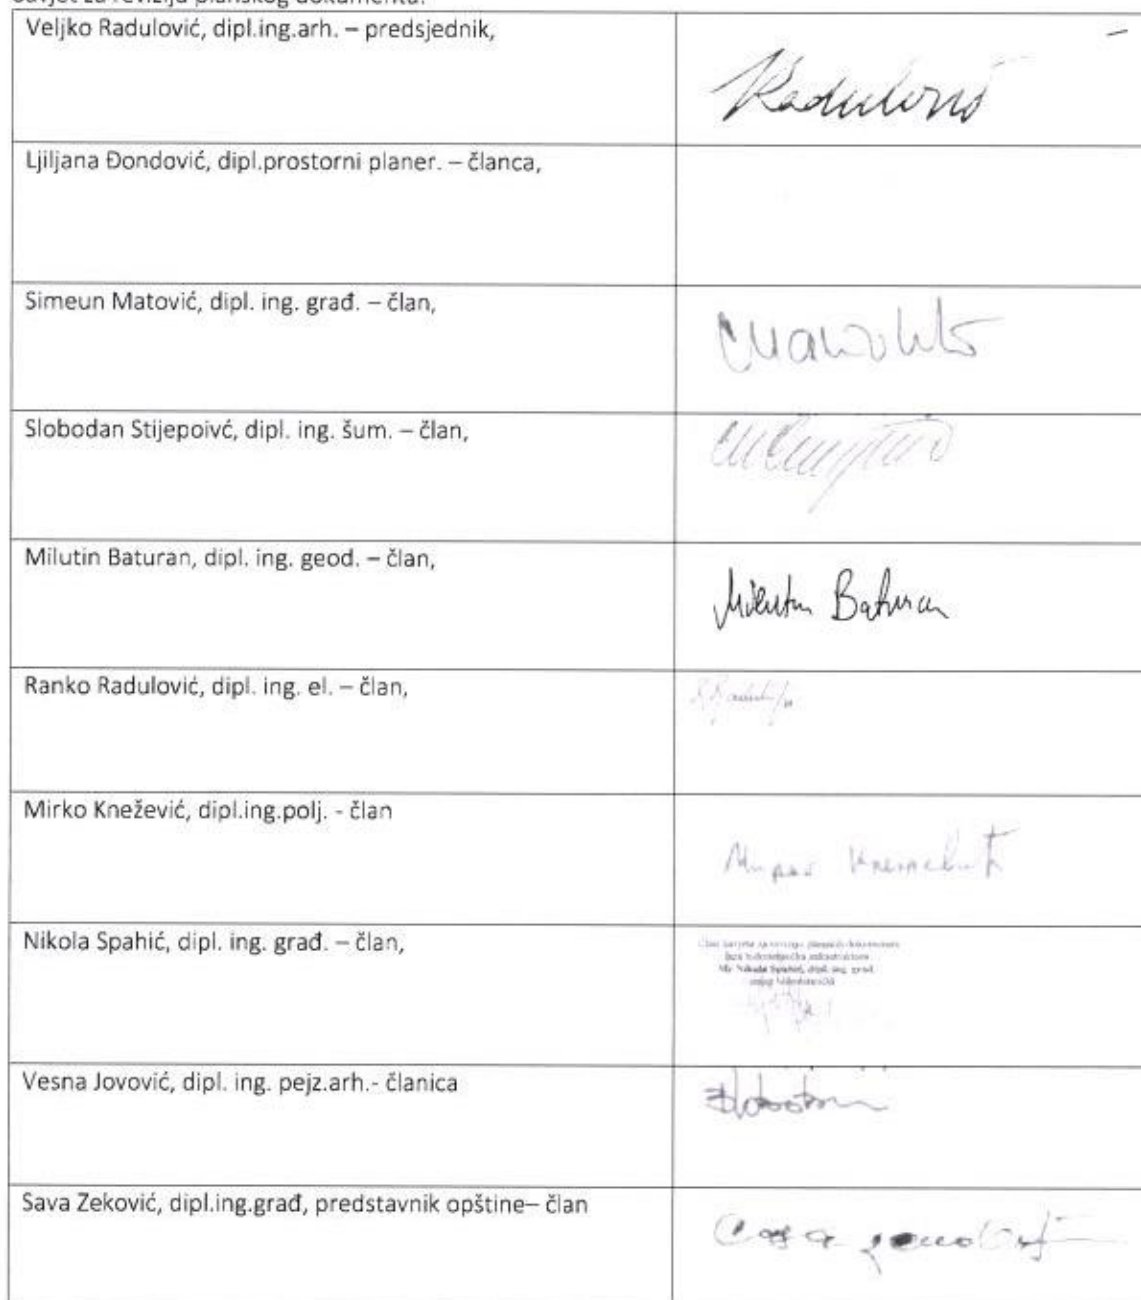 Savjet za reviziju planskog dokumenta:
Veljko Radulović, dipl.ing.arh. – predsjednik,
Radulović
Ljiljana Đondović, dipl.prostorni planer. – članca,
Simeun Matović, dipl. ing. građ. – član,
Slobodan Stijepoivć, dipl. ing. šum. – član,
Milutin Baturan, dipl. ing. geod. – član,
Milutin Baturan
Ranko Radulović, dipl. ing. el. – član,
Mirko Knežević, dipl.ing.polj. - član
Мирко Кнежевић
Nikola Spahić, dipl. ing. građ. – član,
Mr Nikola Spahić, dipl. ing. građ.
Vesna Jovović, dipl. ing. pejz.arh.- članica
Sava Zeković, dipl.ing.građ, predstavnik opštine– član